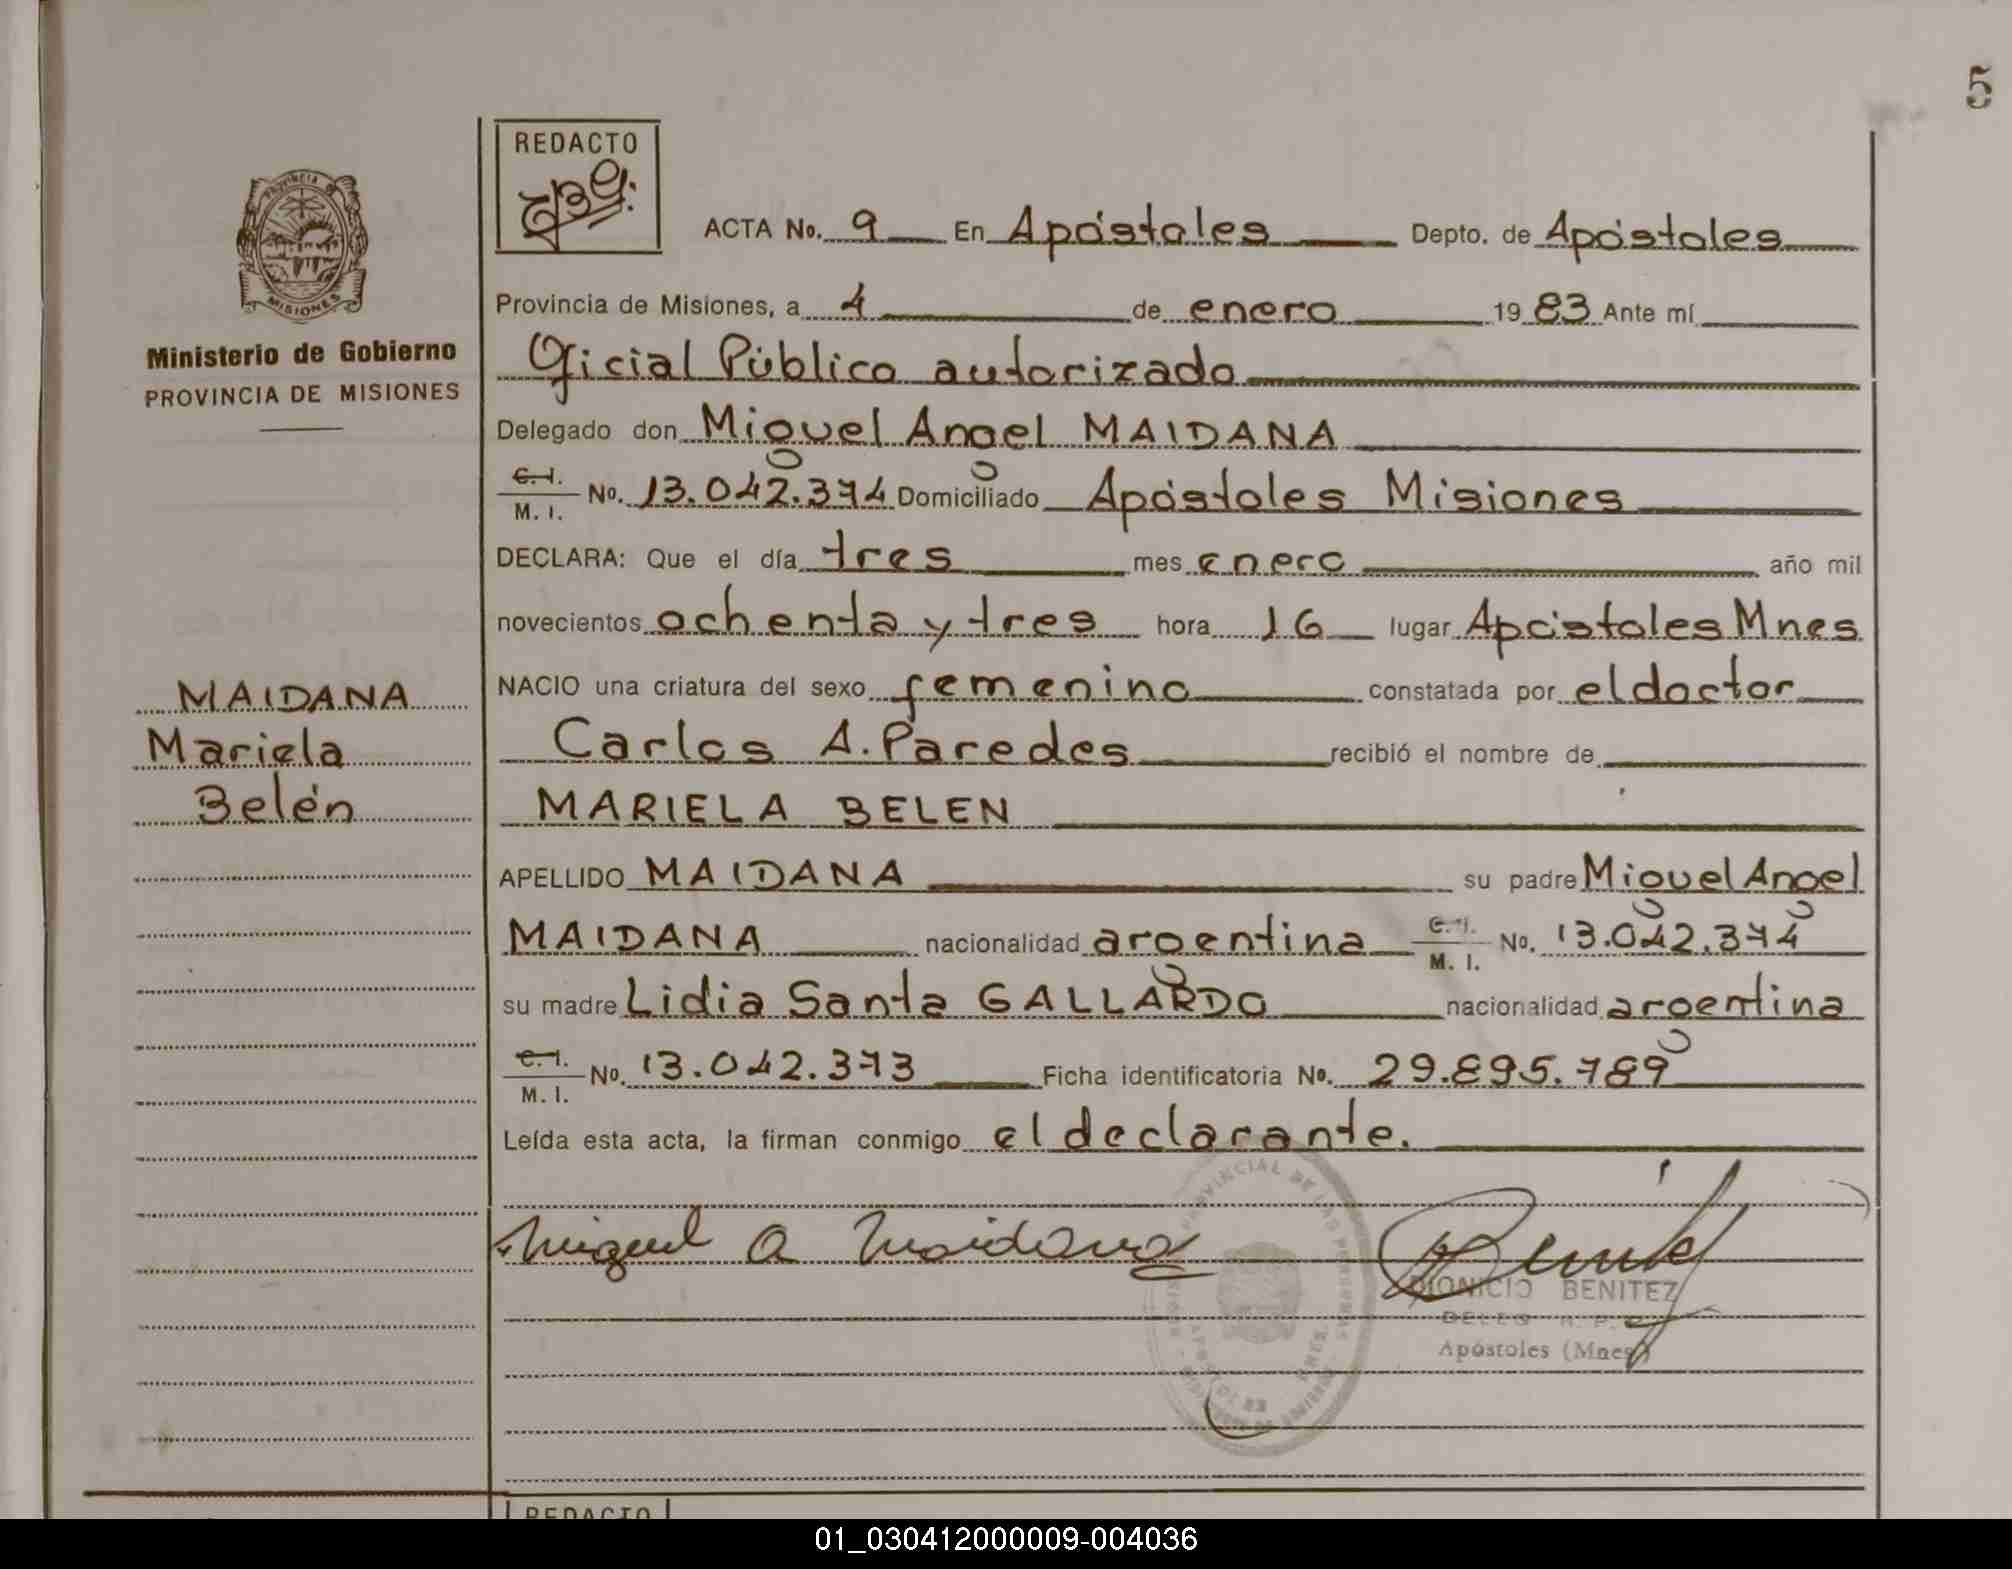 5
REDACTO
PROVINCIA DE
MISIONES
ACTA No. 9 En Apóstoles Depto. de Apóstoles
Provincia de Misiones, a 4 de enero 1983 Ante mí
Ministerio de Gobierno
PROVINCIA DE MISIONES
Oficial Público autorizado
Delegado don Miguel Angel MAIDANA
C. I.
M. I. No. 13.042.374 Domiciliado Apóstoles Misiones
DECLARA: Que el día tres mes enero año mil
novecientos ochenta y tres hora 16 lugar Apóstoles Mnes
MAIDANA
Mariela
Belén
NACIO una criatura del sexo femenino constatada por el doctor
Carlos A. Paredes recibió el nombre de
MARIELA BELEN
APELLIDO MAIDANA su padre Miguel Angel
MAIDANA nacionalidad argentina C. I.
M. I. No. 13.042.374
su madre Lidia Santa GALLARDO nacionalidad argentina
C. I.
M. I. No. 13.042.373 Ficha identificatoria No. 29.895.789
Leída esta acta, la firman conmigo el declarante.
Miguel A Maidana
DIONICIO BENITEZ
DELEG. R. P.
Apóstoles (Mnes)
PROVINCIAL DE LAS PERSONAS
REDACTO
01_030412000009-004036